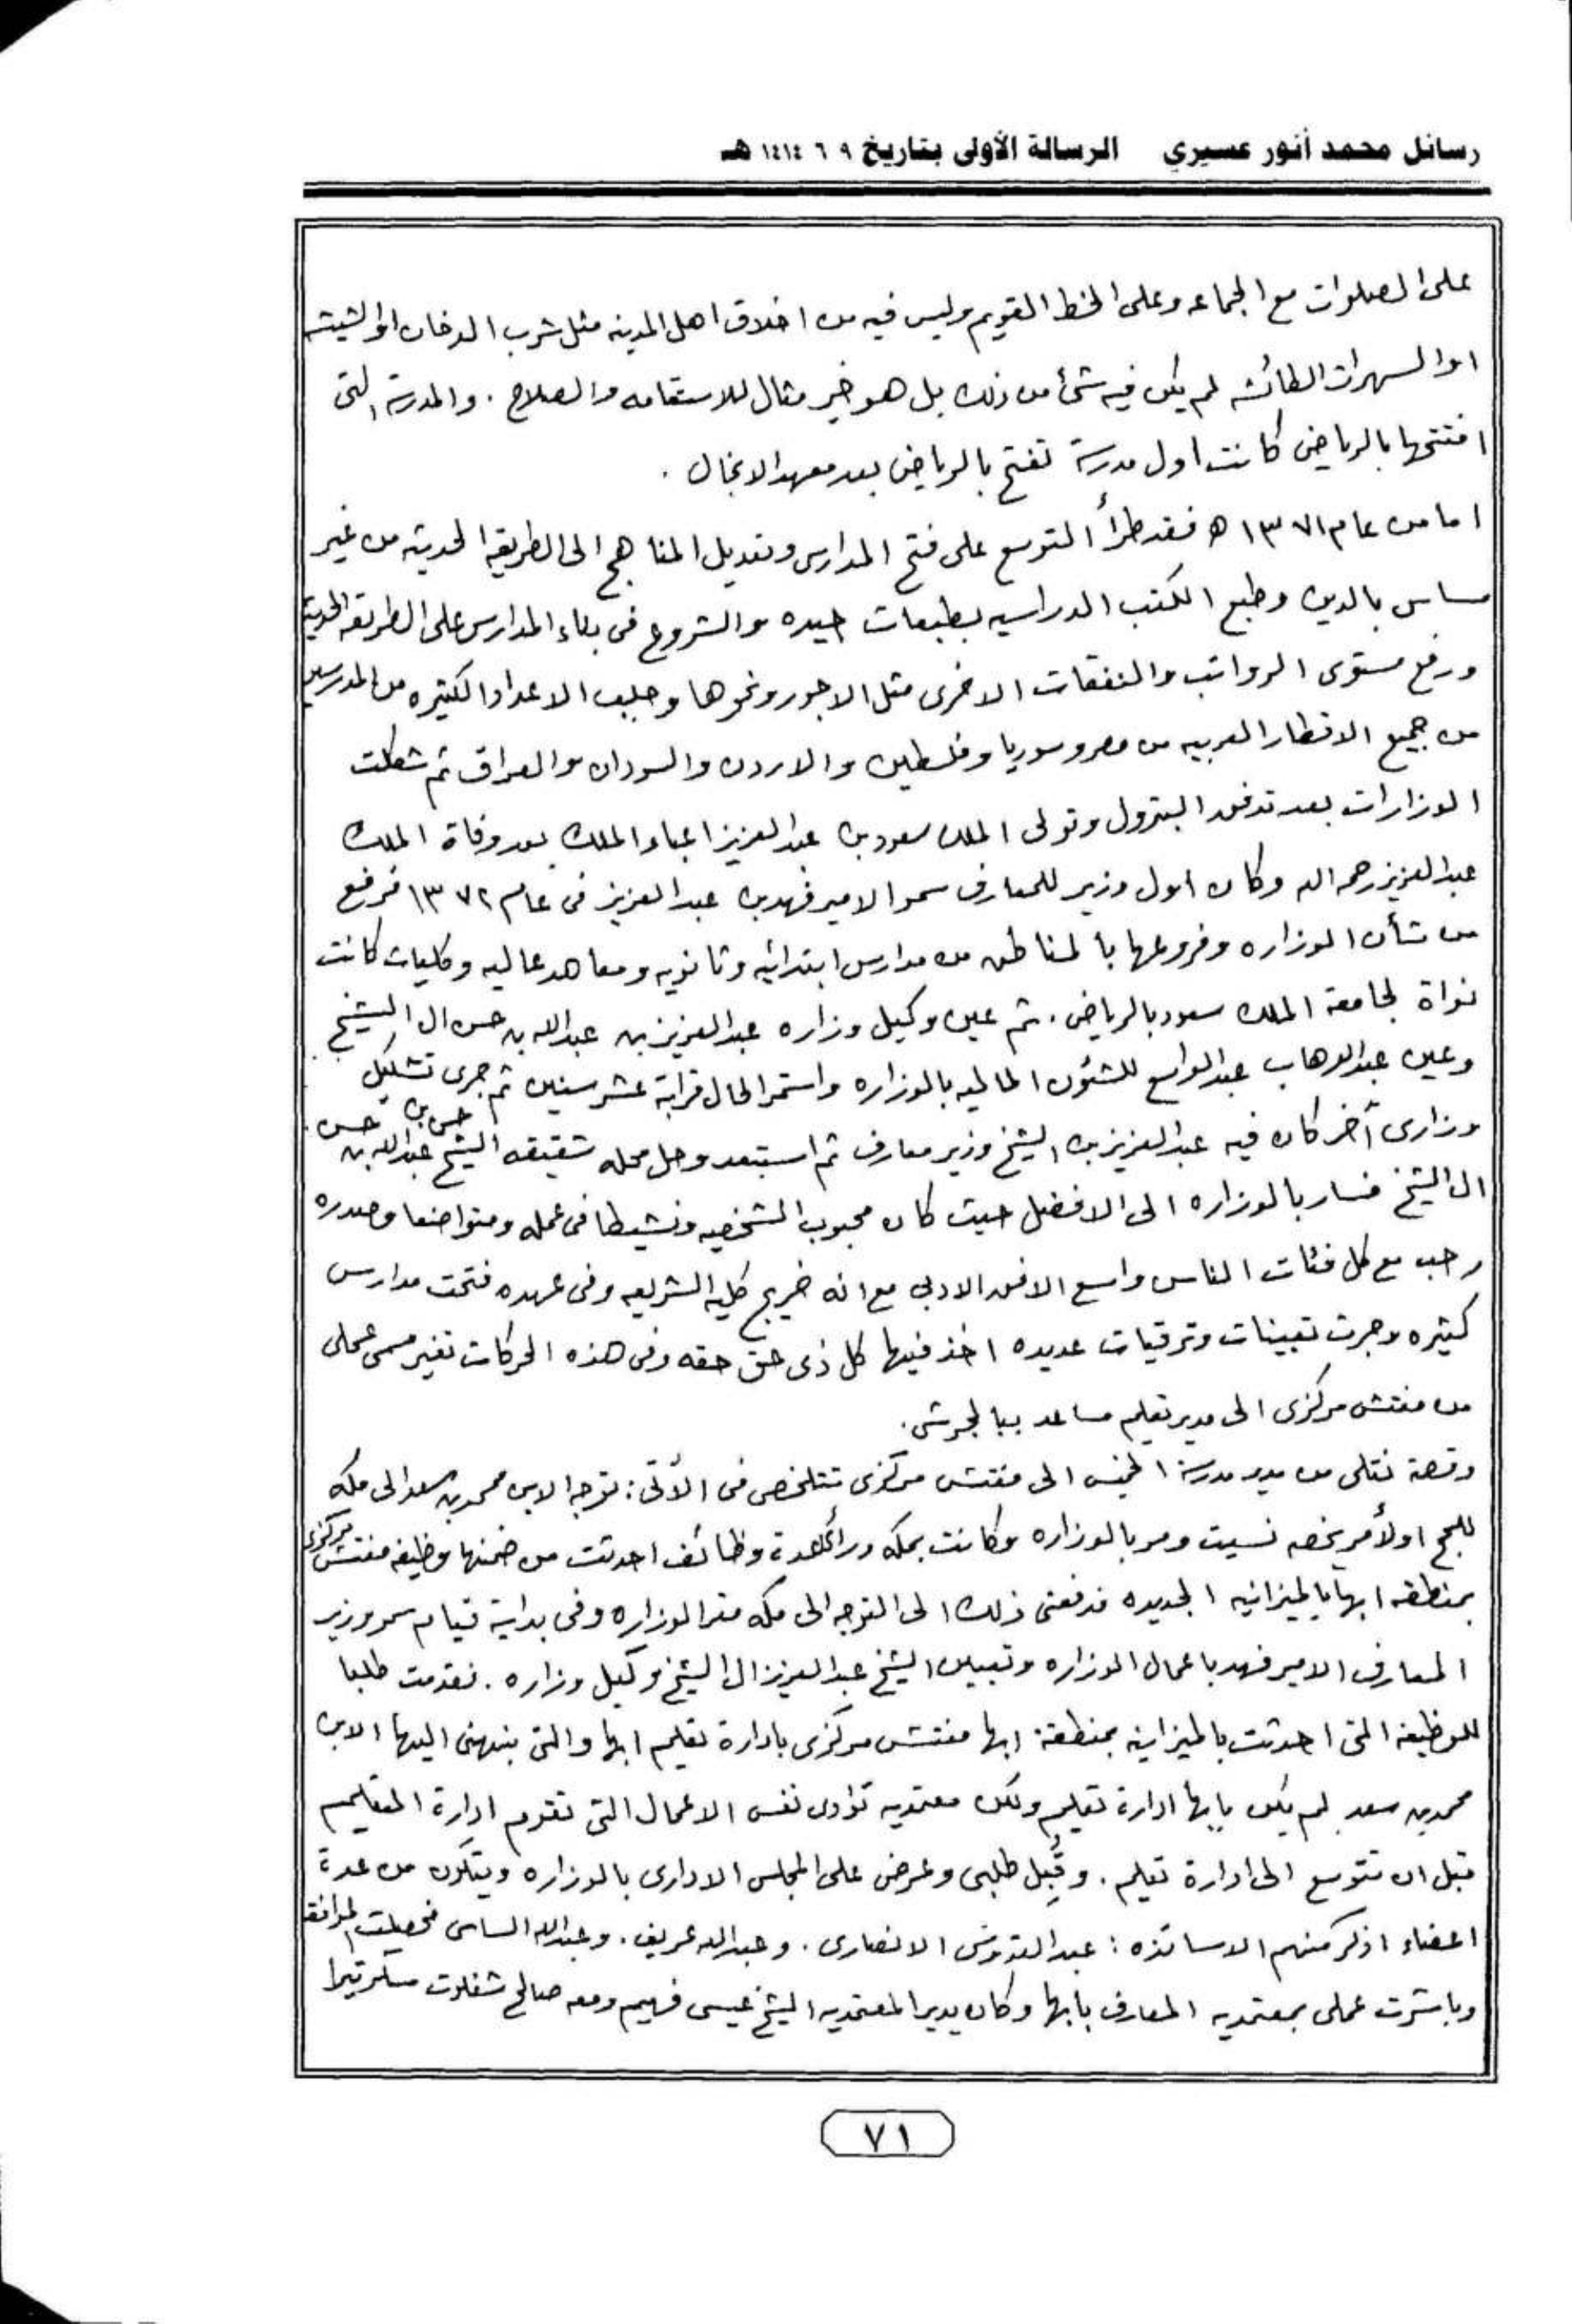 رسائل محمد أنور عسيري    الرسالة الأولى بتاريخ ٩ ٦ ١٤١٤ هـ
على الصلوات مع الجماعه وعلى الخط القويم وليس فيه من اخلاق اهل المدينه مثل شرب الدخان او الشيشه
او السهرات الطائشه لم يكن فيه شئ من ذلك بل هو خير مثال للاستقامه والصلاح . والمدرسة التى
افتتحها بالرياض كانت اول مدرسة تفتح بالرياض بعد معهد الانجال .
اما من عام ١٣٧١ هـ فقد طرأ التوسع على فتح المدارس وتعديل المناهج الى الطريقه الحديثه من غير
مساس بالدين وطبع الكتب الدراسيه بطبعات جيده والشروع فى بناء المدارس على الطريقه الحديثه
ورفع مستوى الرواتب والنفقات الاخرى مثل الاجور ونحوها وجلب الاعداد الكثيره من المدرسين
من جميع الاقطار العربيه من مصر وسوريا وفلسطين والاردن والسودان والعراق ثم شكلت
الوزارات بعد تدفق البترول وتولى الملك سعود بن عبد العزيز اعباء الملك بعد وفاة الملك
عبد العزيز رحمه الله وكان اول وزير للمعارف سمو الامير فهد بن عبد العزيز فى عام ١٣٧٢ فرفع
من شأن الوزاره وفروعها بالمناطق من مدارس ابتدائيه وثانويه ومعاهد عاليه وكليات كانت
نواة لجامعة الملك سعود بالرياض . ثم عين وكيل وزاره عبد العزيز بن عبد الله بن حسن ال الشيخ .
وعين عبد الوهاب عبد الواسع للشئون الماليه بالوزاره واستمر الحال قرابة عشر سنين ثم جرى تشكيل
وزارى آخر كان فيه عبد العزيز بن الشيخ وزير معارف ثم استبعد وحل محله شقيقه الشيخ حسن بن عبد الله بن حسن
ال الشيخ فسار بالوزاره الى الافضل حيث كان محبوب الشخصيه ونشيطا فى عمله ومتواضعا وصدره
رحب مع كل فئات الناس واسع الافق الادبى مع انه خريج كلية الشريعه وفى عهده فتحت مدارس
كثيره وجرت تعيينات وترقيات عديده اخذ فيها كل ذى حق حقه وفى هذه الحركات تغير مسمى عملى
من مفتش مركزى الى مدير تعليم مساعد ببالجرشى .
وقصة نقلى من مدير مدرسة الخميس الى مفتش مركزى تتلخص فى الأتى : توجه الابن محمد بن سعد الى مكه
للحج او لأمر يخصه نسيت ومر بالوزاره وكانت بمكه ورأى عدة وظائف احدثت من ضمنها وظيفه مفتش مركزى
بمنطقه ابها بالميزانيه الجديده فدفعنى ذلك الى التوجه الى مكه مقر الوزاره وفى بداية قيام سمو وزير
المعارف الامير فهد باعمال الوزاره وتعيين الشيخ عبد العزيز ال الشيخ وكيل وزاره . فقدمت طلبا
للوظيفه التى احدثت بالميزانيه بمنطقة ابها مفتش مركزى بادارة تعليم ابها والتى ينبهنى اليها الابن
محمد بن سعد . لم يكن بابها ادارة تعليم ولكن معتمديه تؤدى نفس الاعمال التى تقوم ادارة التعليم
قبل ان تتوسع الى ادارة تعليم . وقُبِل طلبى وعرض على المجلس الادارى بالوزاره ويتكون من عدة
اعضاء اذكر منهم الاساتذه : عبد القدوس الانصارى . وعبد الله عريف . وعبد الله الساسى فحصلت الموافقه
وباشرت عملى بمعتمديه المعارف بابها وكان يدير المعتمديه الشيخ عيسى فهيم ومعه صالح شغلوت سكرتيرا
٧١